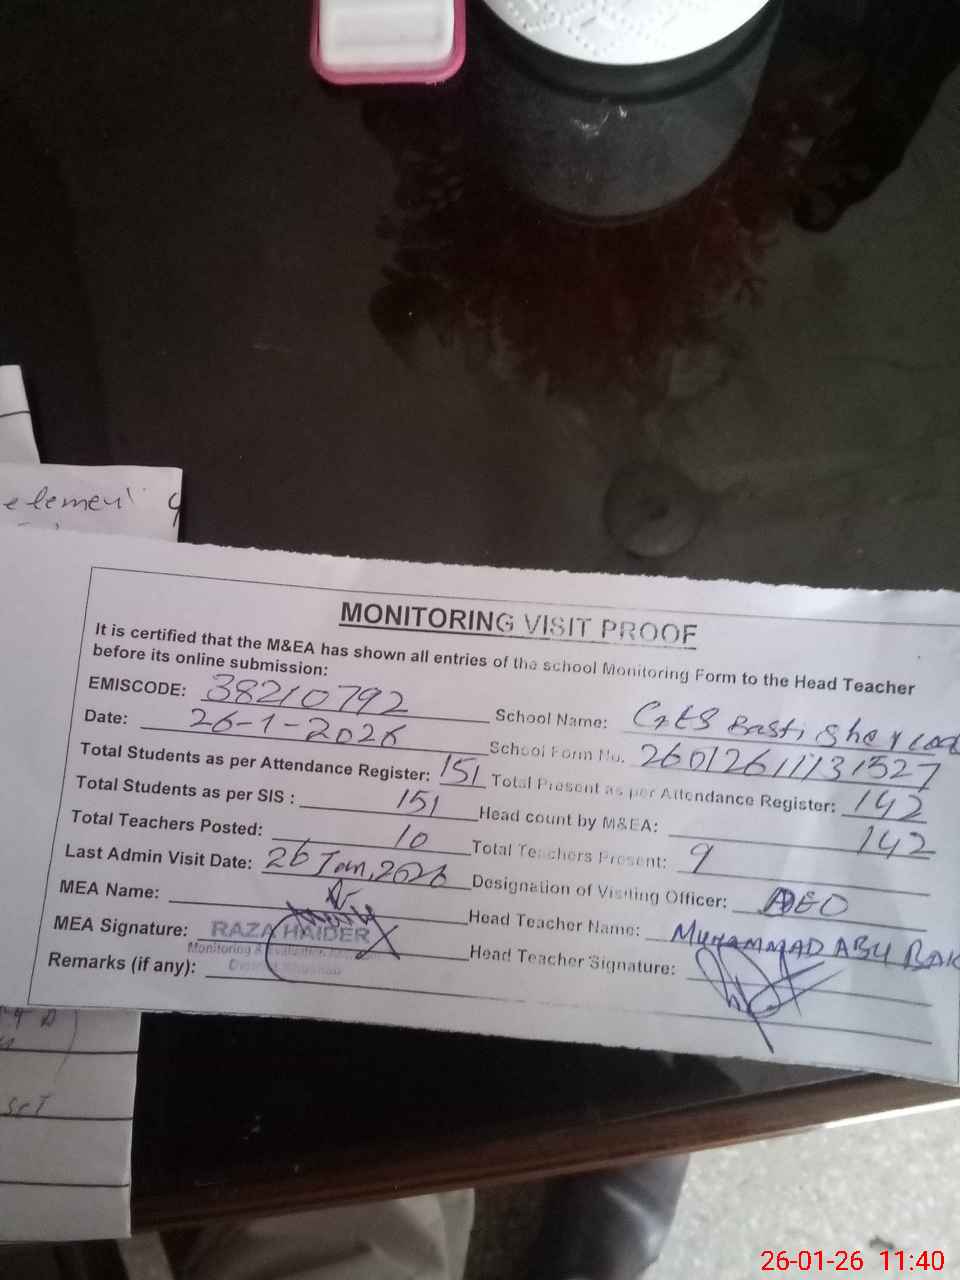 element
MONITORING VISIT PROOF
It is certified that the M&EA has shown all entries of the school Monitoring Form to the Head Teacher
before its online submission:
EMISCODE: 38210792 School Name: GES Basti Sher
Date: 26-1-2026 School Form No. 26012611131527
Total Students as per Attendance Register: 151 Total Present as per Attendance Register: 142
Total Students as per SIS : 151 Head count by M&EA: 142
Total Teachers Posted: 10 Total Teachers Present: 9
Last Admin Visit Date: 26 Jan, 2026 Designation of Visiting Officer: AEO
MEA Name: Head Teacher Name: MUHAMMAD ABU BAK
MEA Signature: RAZA HAIDER Head Teacher Signature:
Monitoring & Evaluation
Remarks (if any):
set
26-01-26 11:40